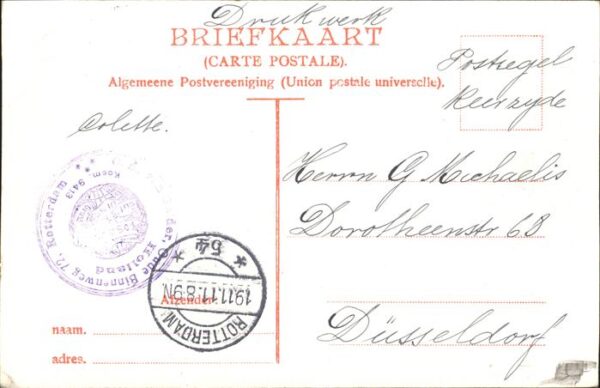 Drukwerk
BRIEFKAART
(CARTE POSTALE).
Algemeene Postvereeniging (Union postale universelle).
Postzegel
keerzyde
Colette.
Herrn G Michaelis
Dorotheenstr 68
Düsseldorf
Oude Binnenweg 72, Rotterdam
Holland
9413
54
19.11.11.8-9N
ROTTERDAM
Afzender:
naam.
adres.